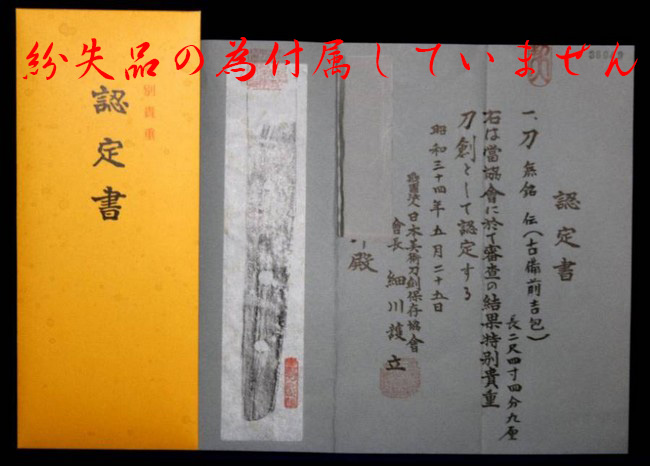 紛失品の為付属していません
特別貴重
認定書
認定書
一、刀 無銘 伝(古備前吉包)
長二尺四寸四分九厘
右は當協會に於て審査の結果特別貴重
刀劍として認定する
昭和三十四年五月二十五日
財團法人日本美術刀劍保存協會
會長 細川護立
殿